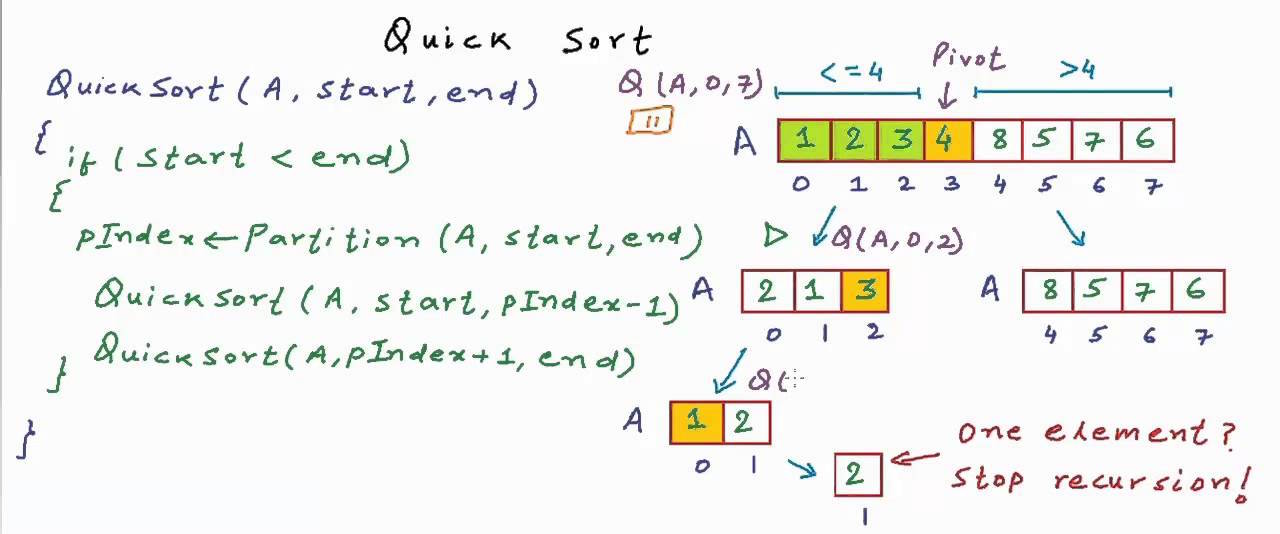 Quick Sort
QuickSort(A, start, end)
{
if (start < end)
{
pIndex ← Partition (A, start, end)
QuickSort (A, start, pIndex-1)
QuickSort(A, pIndex+1, end)
}
}
Q (A, 0, 7)
<=4
Pivot
>4
A 1 2 3 4 8 5 7 6
0 1 2 3 4 5 6 7
Q(A, 0, 2)
A 2 1 3
0 1 2
A 8 5 7 6
4 5 6 7
Q(
A 1 2
0 1
2
1
One element?
Stop recursion!